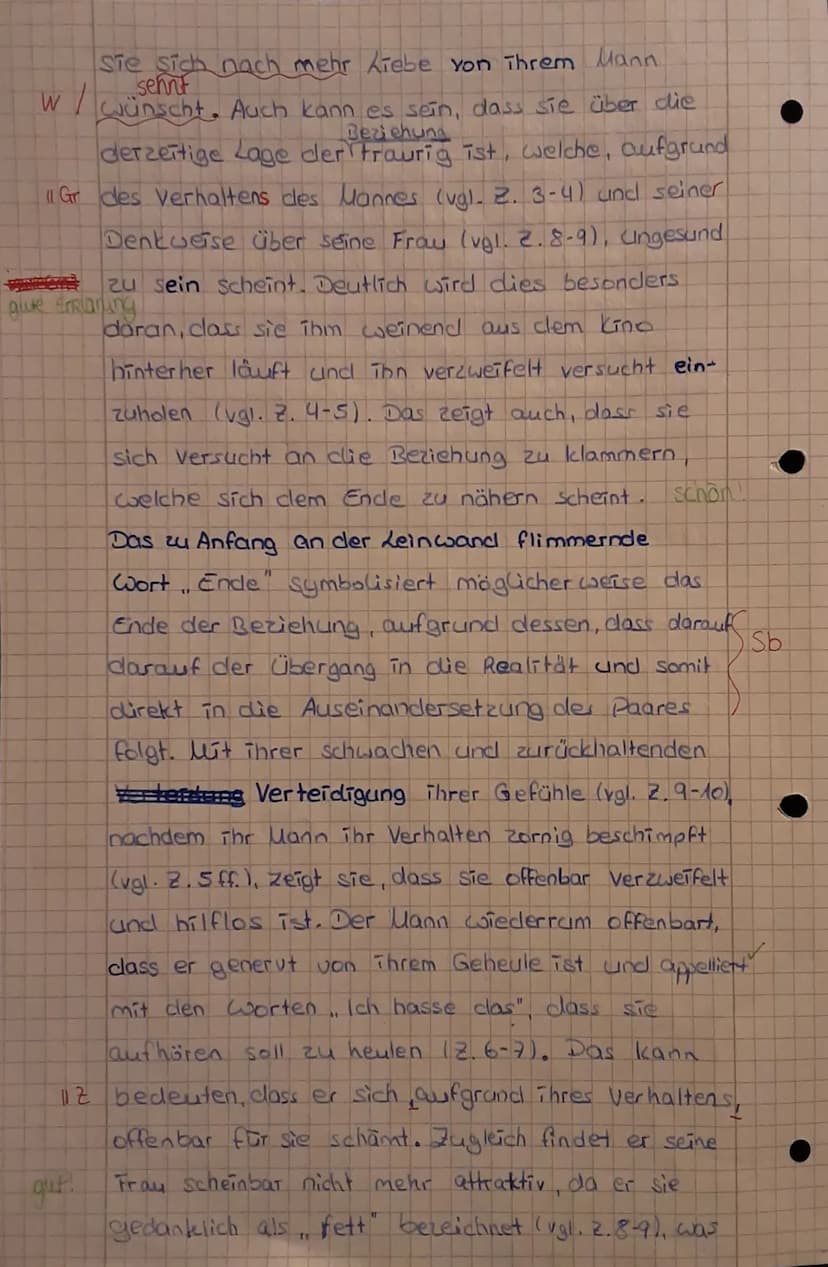 sie sich nach mehr Liebe von ihrem Mann
sehnt
W / wünscht. Auch kann es sein, dass sie über die
Beziehung
derzeitige Lage der traurig ist, welche, aufgrund
II Gr des Verhaltens des Mannes (vgl. Z. 3-4) und seiner
Denkweise über seine Frau (vgl. Z. 8-9), ungesund
zu sein scheint. Deutlich wird dies besonders
gute Erklärung
daran, dass sie ihm weinend aus dem Kino
hinterher läuft und ihn verzweifelt versucht ein-
zuholen (vgl. Z. 4-5). Das zeigt auch, dass sie
sich versucht an die Beziehung zu klammern,
welche sich dem Ende zu nähern scheint. schön!
Das zu Anfang an der Leinwand flimmernde
Wort „Ende" symbolisiert möglicherweise das
Ende der Beziehung, aufgrund dessen, dass darauf
Sb
darauf der Übergang in die Realität und somit
direkt in die Auseinandersetzung des Paares
folgt. Mit ihrer schwachen und zurückhaltenden
Verteidigung ihrer Gefühle (vgl. Z. 9-10),
nachdem ihr Mann ihr Verhalten zornig beschimpft
(vgl. Z. 5 ff.), zeigt sie, dass sie offenbar verzweifelt
und hilflos ist. Der Mann wiederrum offenbart,
dass er genervt von ihrem Geheule ist und appelliert ✓
mit den Worten „Ich hasse das", dass sie
aufhören soll zu heulen (Z. 6-7). Das kann
II Z bedeuten, dass er sich, aufgrund ihres Verhaltens,
offenbar für sie schämt. Zugleich findet er seine
gut! Frau scheinbar nicht mehr attraktiv, da er sie
gedanklich als „fett" bezeichnet (vgl. Z. 8-9), was